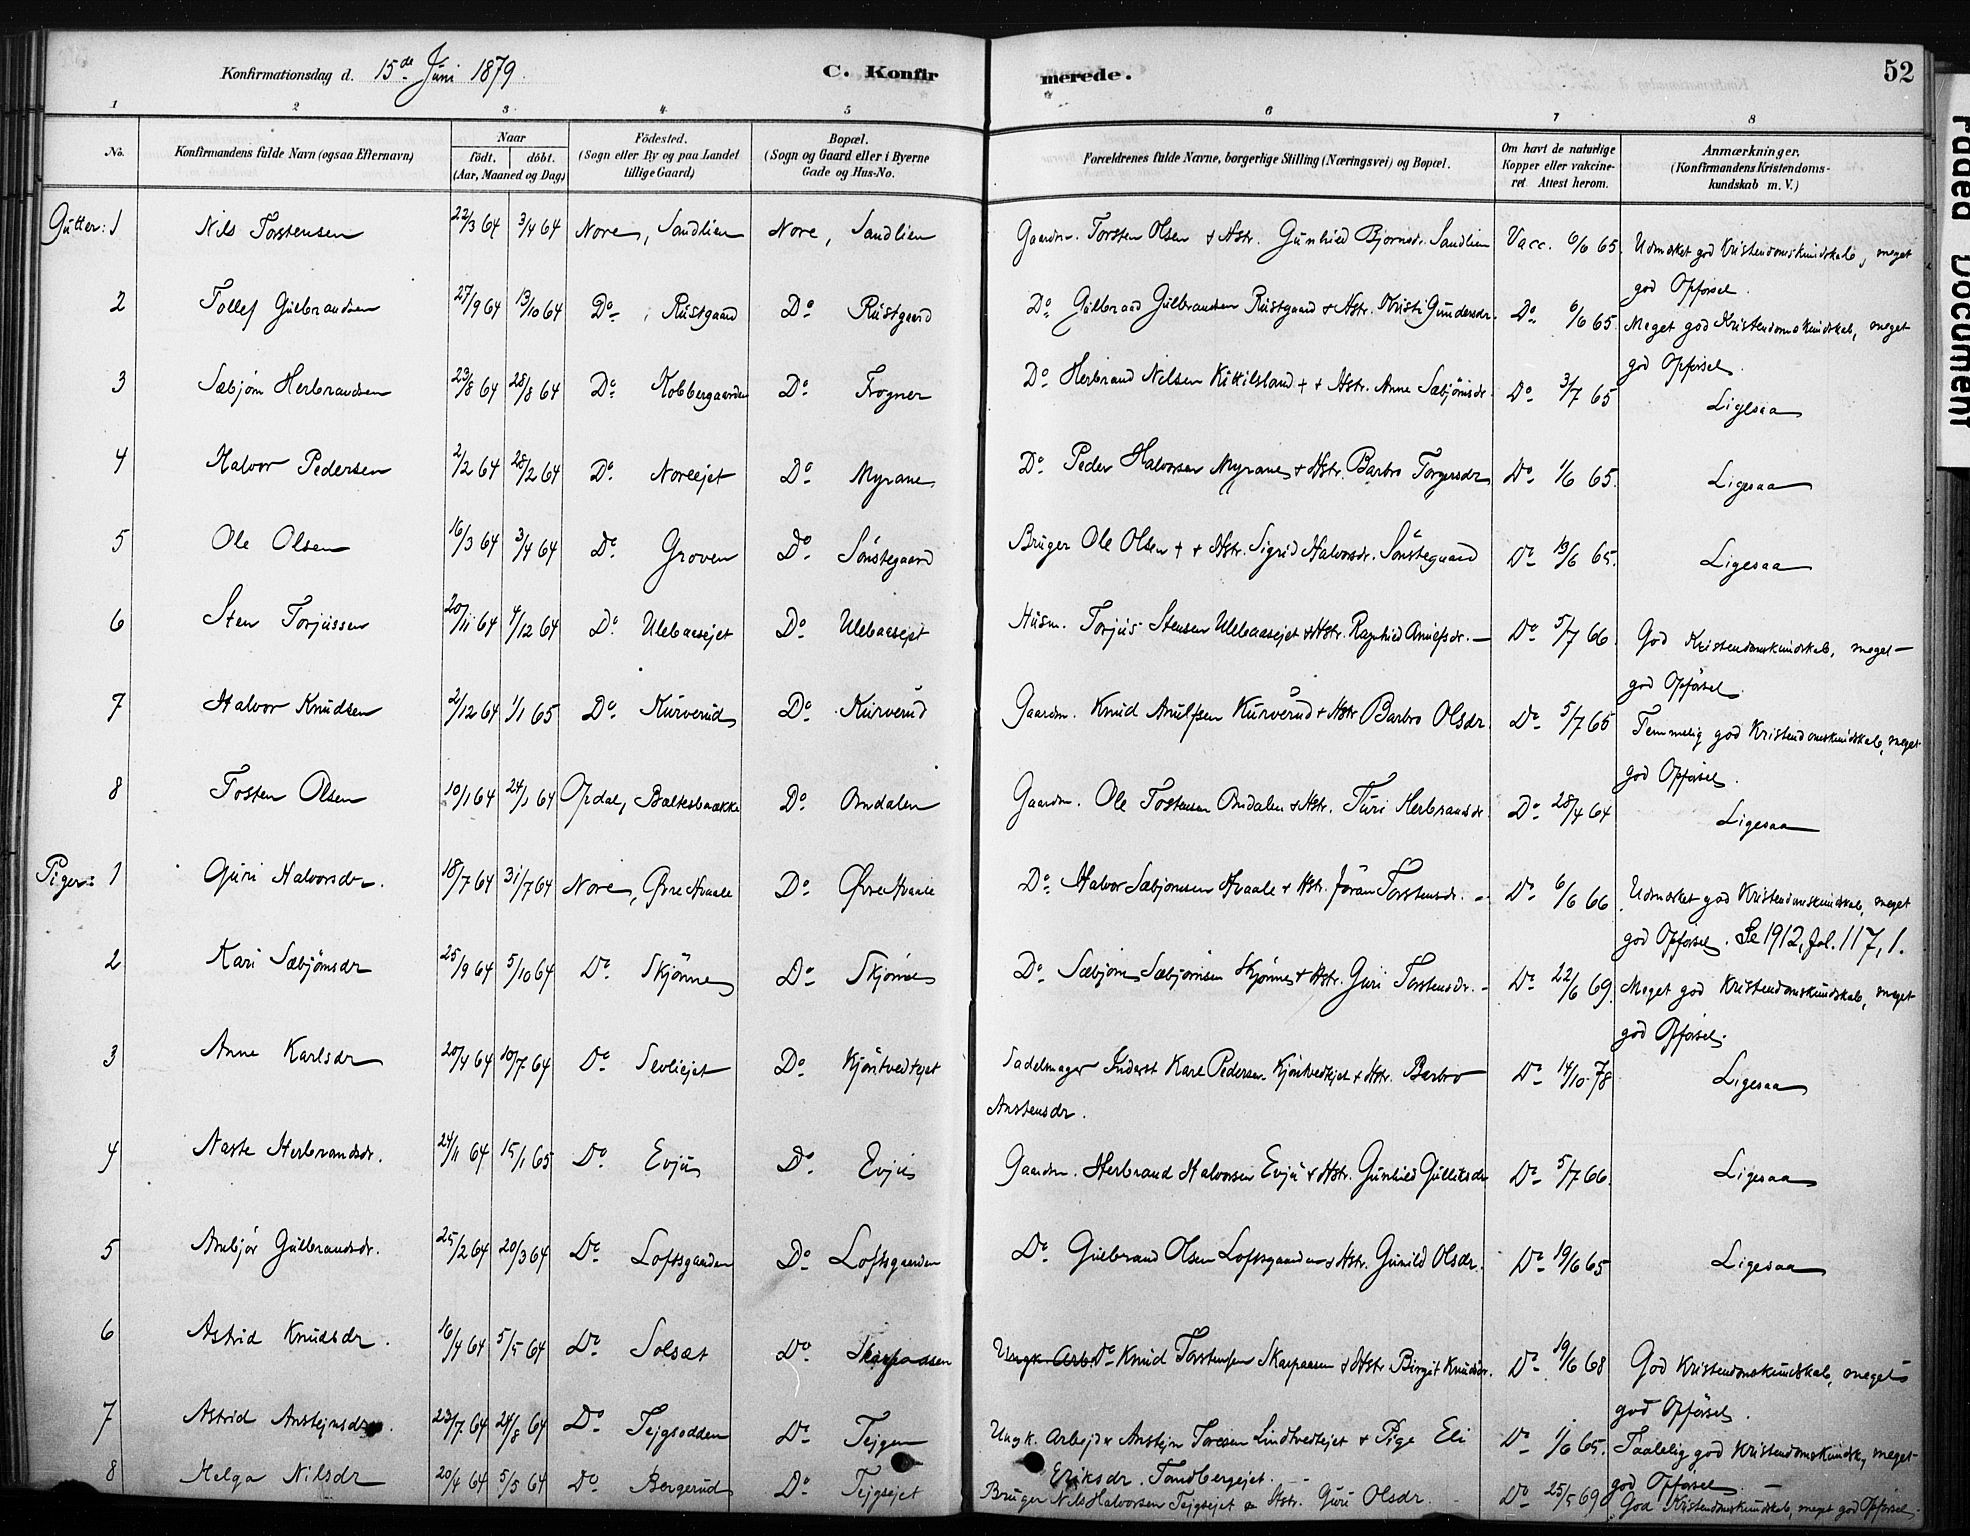 Konfirmationsdag d. 15de Juni 1879. C. Konfirmerede. 52
1 2 3 4 5 6 7 8
No. Konfirmandens fulde Navn (ogsaa Efternavn) Naar født. døbt. (Aar, Maaned og Dag) Födested. (Sogn eller By og paa Landet tillige Gaard) Bopæl. (Sogn og Gaard eller i Byerne Gade og Hus-No. Forældrenes fulde Navne, borgerlige Stilling (Næringsvei) og Bopæl. Om havt de naturlige Kopper eller vakcineret. Attest herom. Anmærkninger. (Konfirmandens Kristendomskundskab m. V.)
Gutter: 1 Nils Torstensen 22/3 64 3/4 64 Nore, Sandlien Nore, Sandlien Gaardm. Torsten Olsen + Hstr. Gunhild Bjornsdr. Sandlien Vacc. 6/6 65. Udmærket god Kristendomskundskab, meget god Opførsel.
2 Tollef Gulbrandsen 27/9 64 13/10 64 Do, Rustgaard Do Rustgaard Do Gulbrand Gulbrandsen Rustgaard + Hstr. Kristi Gundersdr. Do 6/6 65. Meget god Kristendomskundskab, meget god Opførsel.
3 Sæbjörn Herbrandsen 23/8 64 28/8 64 Do Kobbergaarden Do Frogner Do Herbrand Nilsen Kittilsland + + Hstr. Anne Sæbjörnsdr. Do 3/7 65 Ligesaa
4 Halvor Pedersen 2/2 64 28/2 64 Do Noreejet Do Myrane Do Peder Halvorsen Myrane + Hstr. Barbro Torgersdr Do 1/6 65. Ligesaa
5 Ole Olsen 16/3 64 3/4 64 Do Groven Do Sönstegaard Bruger Ole Olsen + + Hstr. Sigrid Halvorsdr. Sönstegaard Do 13/6 65. Ligesaa
6 Sten Torjussen 20/11 64 4/12 64 Do Ulebaasejet Do Ulebaasejet Husm. Torjus Stensen Ulebaasejet + Hstr. Ragnhild Do 5/7 66. God Kristendomskundskab, meget god Opførsel.
7 Halvor Knudsen 2/12 64 1/1 65 Do Kurverud Do Kurverud Gaardm. Knud Anulfsen Kurverud + Hstr Barbro Olsdr. Do 5/7 65 Temmelig god Kristendomskundskab, meget god Opførsel.
8 Tosten Olsen 10/1 64 24/1 64 Opdal, Baltesbrække Do Omdalen Gaardm. Ole Tostensen Omdalen + Hstr. Turi Herbrandsdr. Do 28/4 64 Ligesaa
Piger: 1 Guri Halvorsdr. 18/7 64 31/7 64 Nore, Øvre Hvaale Do Øvre Hvaale Do Halvor Sæbjornsen Hvaale + Hstr. Jöran Torstensdr. Do 6/6 66 Udmærket god Kristendomskundskab, meget god Opførsel. Se 1912, fol. 117, 1.
2 Kari Sæbjörnsdr 25/9 64 5/10 64 Do Skjönne Do Skjönne Do Sæbjörn Sæbjörnsen Skjönne + Hstr. Guri Torstensdr. Do 22/6 69. Meget god Kristendomskundskab, meget god Opførsel.
3 Anne Karlsdr 20/4 64 10/7 64 Do Sevliejet Do Kjöntvedtejet Sadelmager Inderst Karl Pedersen Kjöntvedtejet + Hstr. Barbro Anstensdr. Do 14/10 78 Ligesaa
4 Narte Herbrandsdr. 24/11 64 15/1 65 Do Evju Do Evju Gaardm. Herbrand Halvorsen Evju + Hstr. Gunhild Gulliksdr Do 5/7 66. Ligesaa
5 Anbjör Gulbrandsdr. 25/2 64 20/3 64 Do Loftsgaarden Do Loftsgaarden Do Gulbrand Olsen Loftsgaarden + Hstr. Gunild Olsdr. Do 19/6 65 Ligesaa
6 Astrid Knudsdr. 16/4 64 5/5 64 Do Solsæt Do Skarpaasen Ungk. Arb. Do Knud Torstensen Skarpaasen + Hstr Birgit Knudsdr. Do 19/6 68 God Kristendomskundskab, meget god Opførsel.
7 Astrid Anstejnsdr. 23/7 64 21/8 64 Do Tejgsodden Do Tejgen Ungk. Arbejder Anstejn Toresen Lindtvedtejet + Pige Eli Eriksdr. Tandbergejet. Do 1/6 65. Taalelig god Kristendomskundsk, meget god Opførsel.
8 Helga Nilsdr 20/4 64 5/5 64 Do Bergerud Do Tejgsejet Bruger Nils Halvorsen Tejgsejet & Hstr. Guri Olsdr. Do 25/5 69 God Kristendomskundskab, meget god Opførsel.
Faded Document